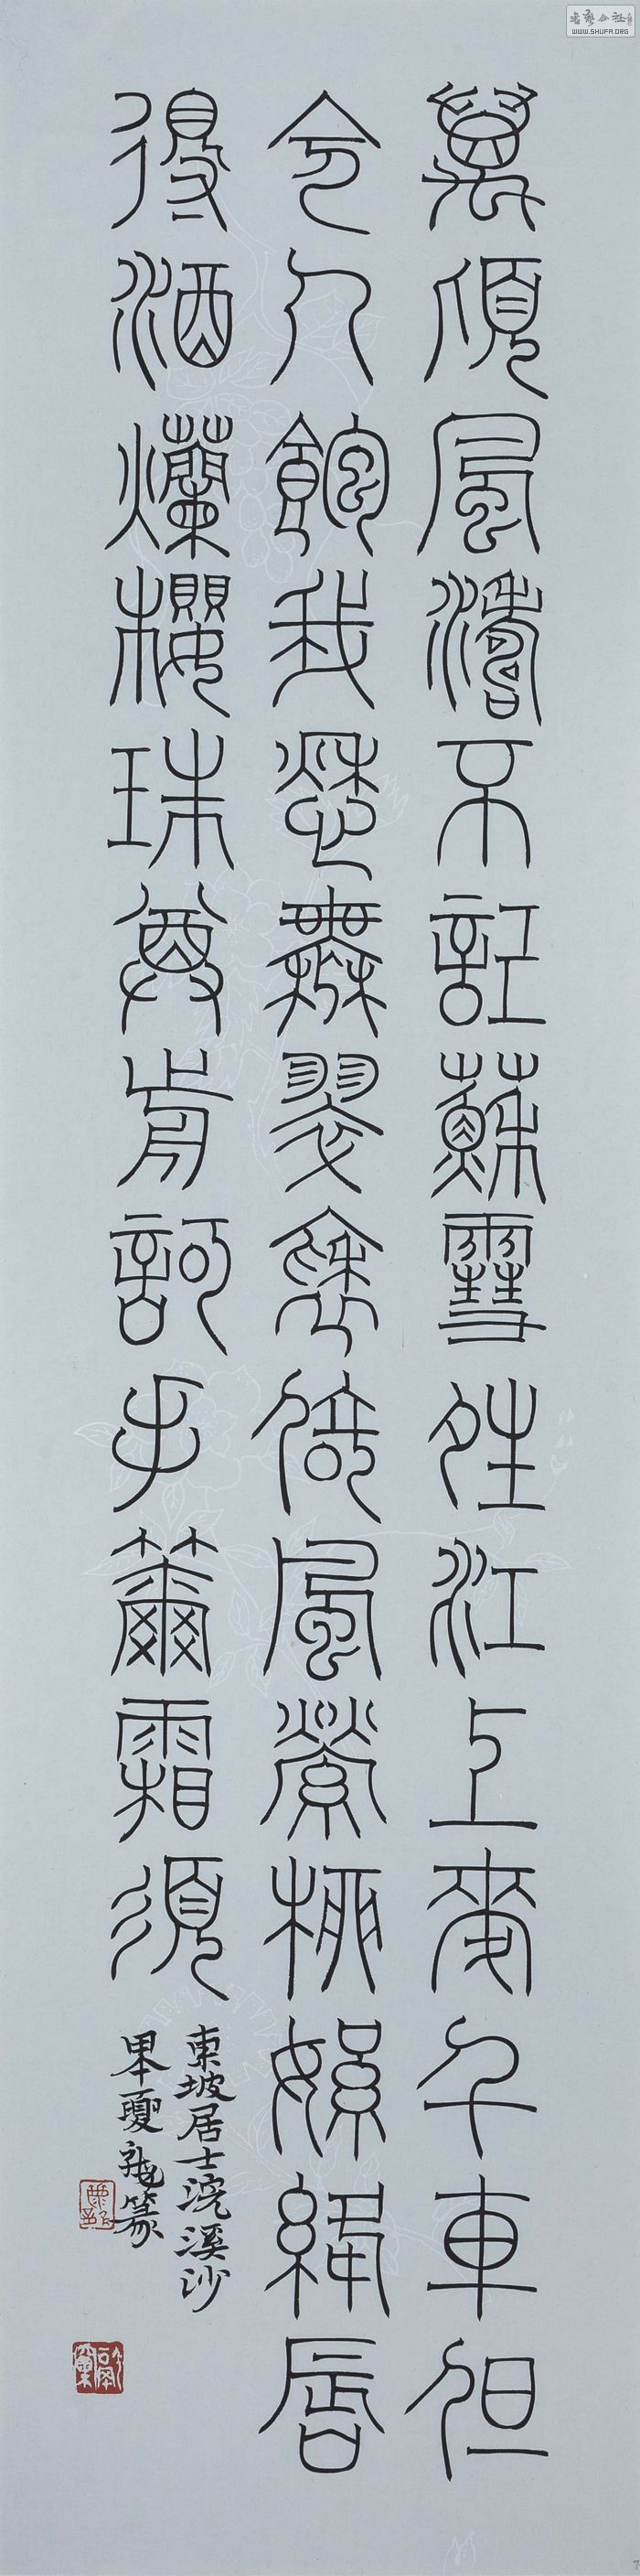 萬頃風濤不記蘇雪晴江上麥千車但
令人飽我愁無翠袖倚風縈柳絮絳脣
得酒爛櫻珠尊前訶手籋霜須
東坡居士浣溪沙
夏篆
書藝公社
WWW.SHUFA.ORG